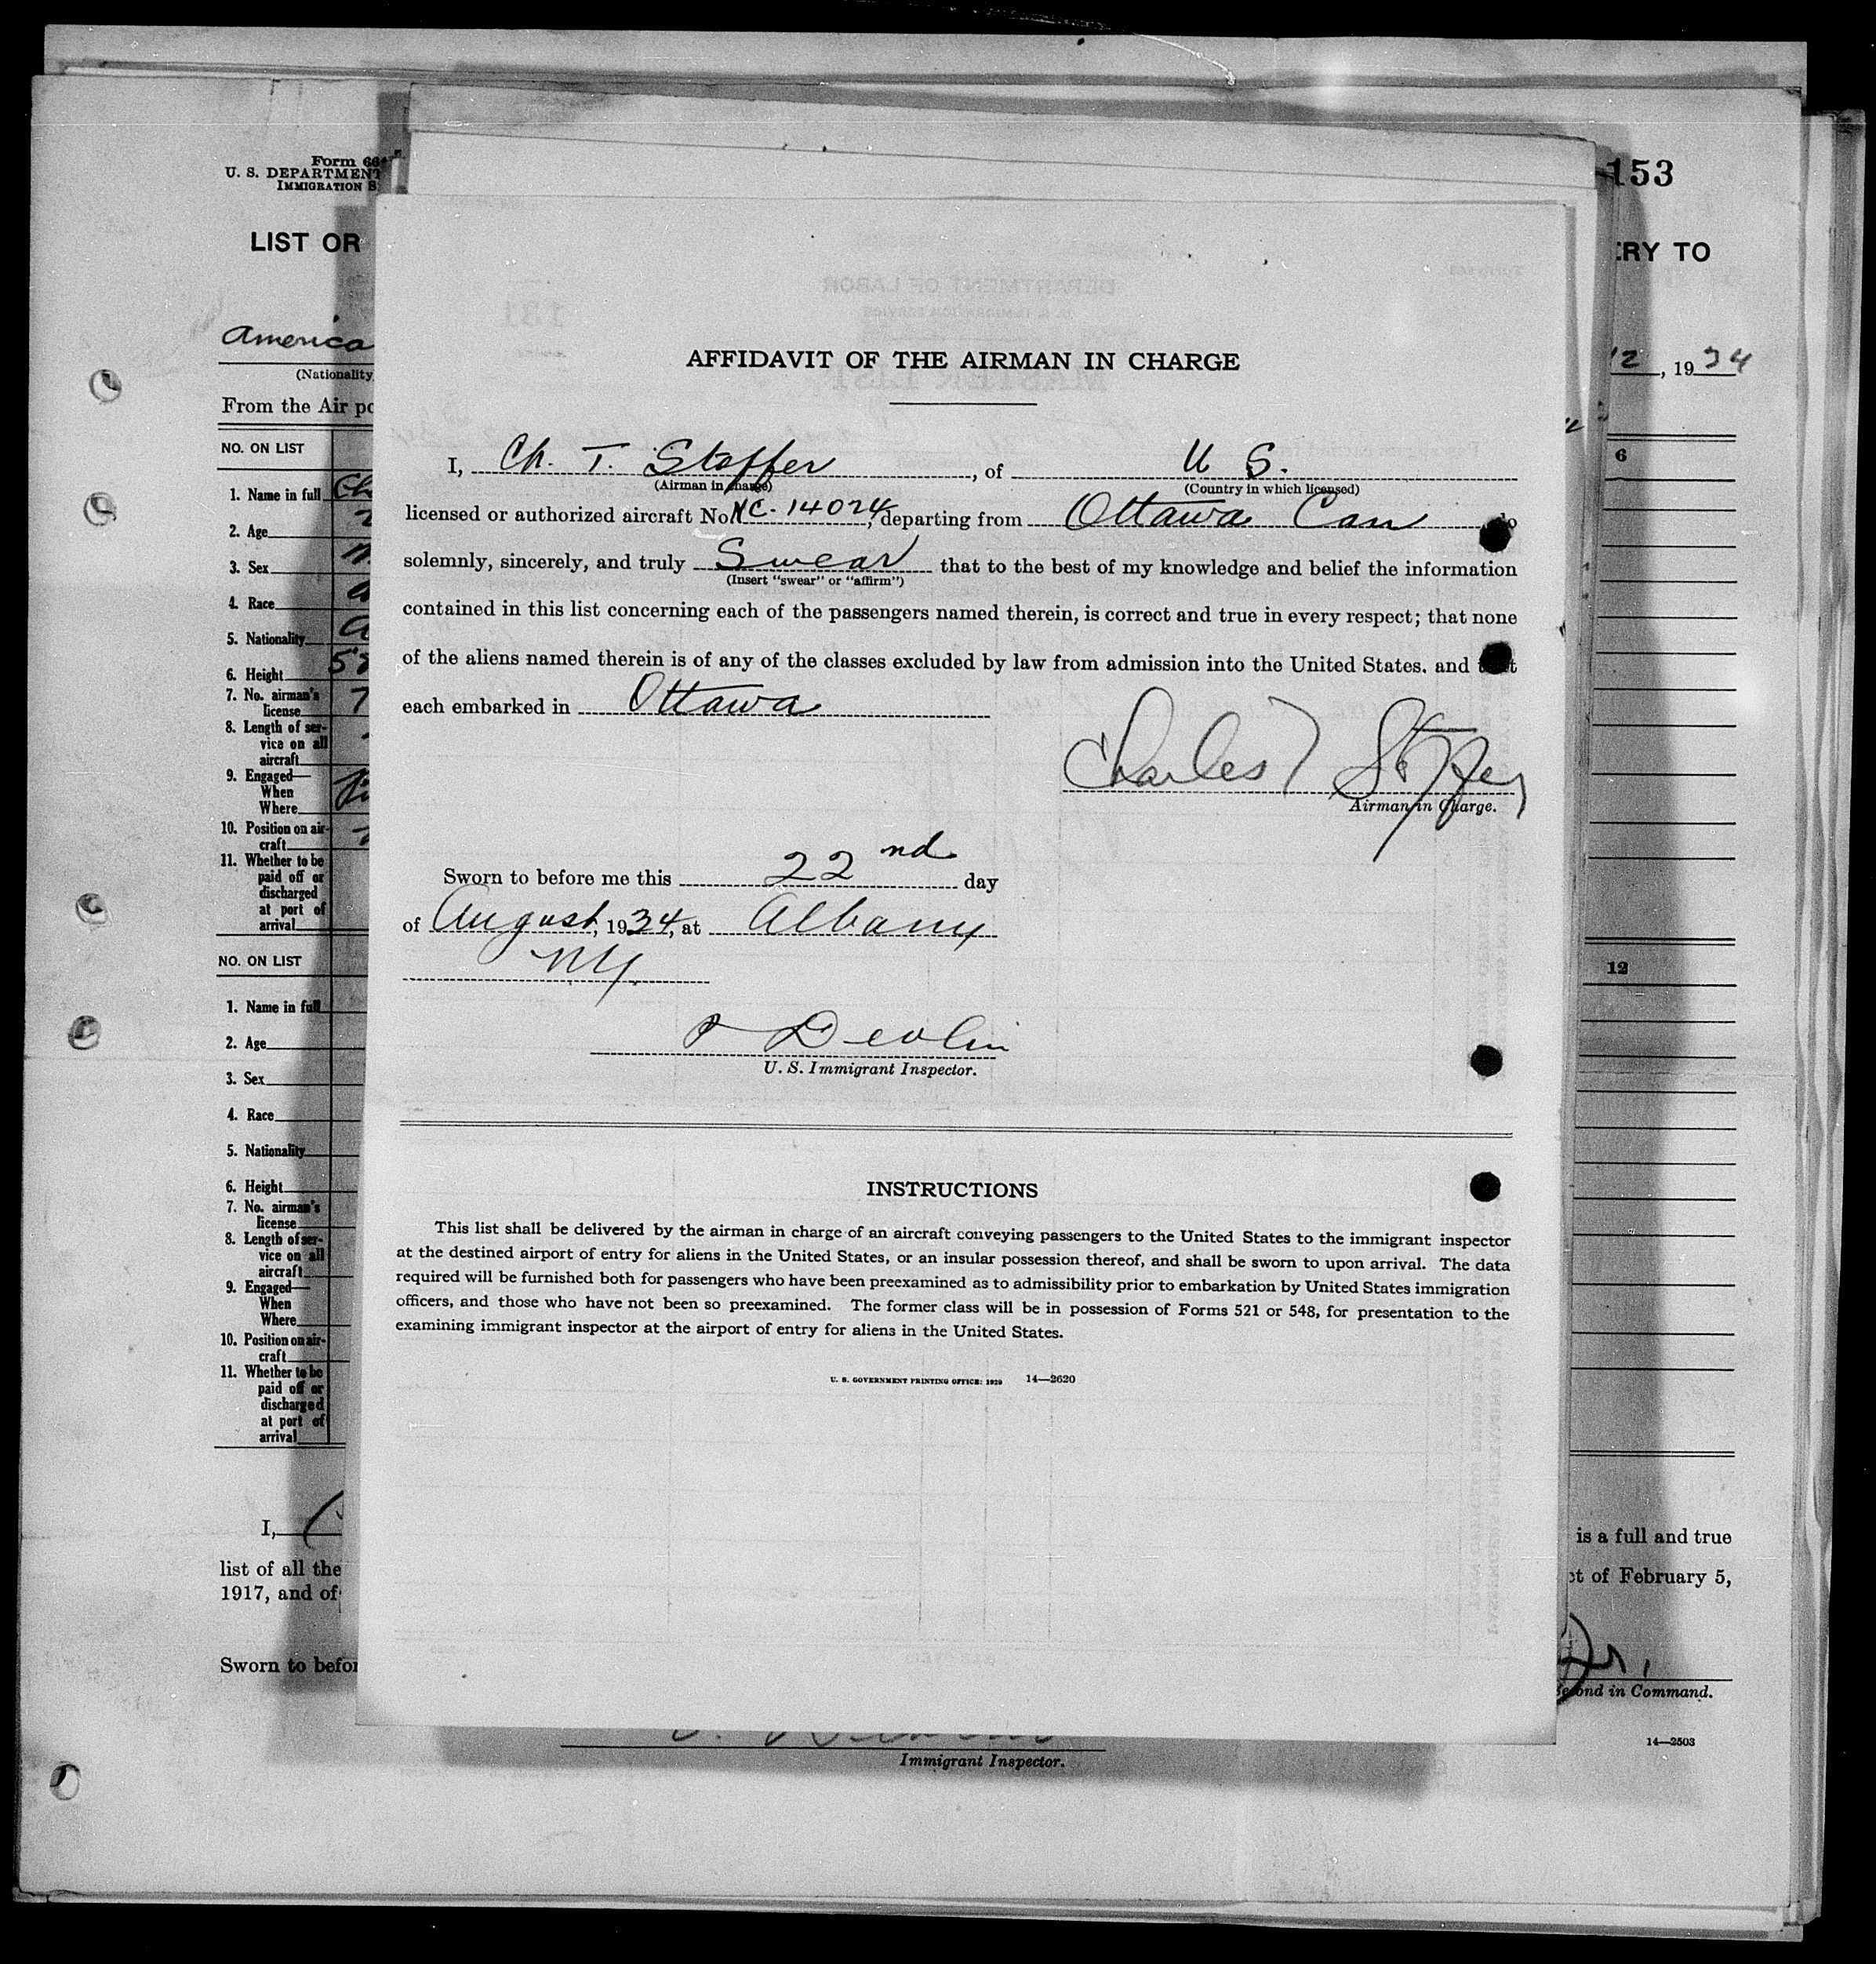 Form 66
U. S. DEPARTMENT
IMMIGRATION S
153
LIST OR
ERY TO
America
(Nationality
12, 1934
From the Air po
NO. ON LIST
6
1. Name in full Ch
2. Age
3. Sex
4. Race
5. Nationality
6. Height 5'
7. No. airman's
license 7
8. Length of ser-
vice on all
aircraft
9. Engaged—
When
Where
10. Position on air-
craft
11. Whether to be
paid off or
discharged
at port of
arrival
NO. ON LIST
12
1. Name in full
2. Age
3. Sex
4. Race
5. Nationality
6. Height
7. No. airman's
license
8. Length of ser-
vice on all
aircraft
9. Engaged—
When
Where
10. Position on air-
craft
11. Whether to be
paid off or
discharged
at port of
arrival
I,
is a full and true
list of all the
ct of February 5,
1917, and of
Sworn to befor
Second in Command.
14—2503
Immigrant Inspector.
AFFIDAVIT OF THE AIRMAN IN CHARGE
I, Ch. T. Stoffer, of U S.
(Airman in charge) (Country in which licensed)
licensed or authorized aircraft No. NC-14024, departing from Ottawa Can, do
solemnly, sincerely, and truly Swear that to the best of my knowledge and belief the information
(Insert "swear" or "affirm")
contained in this list concerning each of the passengers named therein, is correct and true in every respect; that none
of the aliens named therein is of any of the classes excluded by law from admission into the United States, and that
each embarked in Ottawa
Charles T Stoffer
Airman in Charge.
Sworn to before me this 22nd day
of August, 1934, at Albany
NY.
Devlin
U. S. Immigrant Inspector.
INSTRUCTIONS
This list shall be delivered by the airman in charge of an aircraft conveying passengers to the United States to the immigrant inspector
at the destined airport of entry for aliens in the United States, or an insular possession thereof, and shall be sworn to upon arrival. The data
required will be furnished both for passengers who have been preexamined as to admissibility prior to embarkation by United States immigration
officers, and those who have not been so preexamined. The former class will be in possession of Forms 521 or 548, for presentation to the
examining immigrant inspector at the airport of entry for aliens in the United States.
U. S. GOVERNMENT PRINTING OFFICE: 1929 14—2620